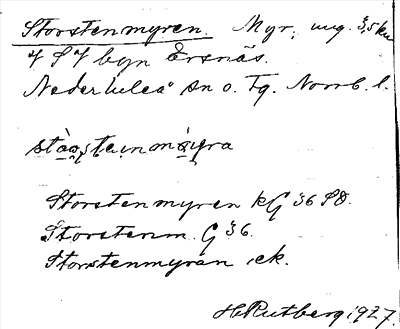 Storstenmyren. Myr, ung. 3,5 km
V S V byn Ersnäs.
Nederluleå sn o. Tg. Norrb. l.
Storstenmyren kG 36 SO.
Storstenm. G 36.
Storstenmyran ek.
H. Rutberg 1927.